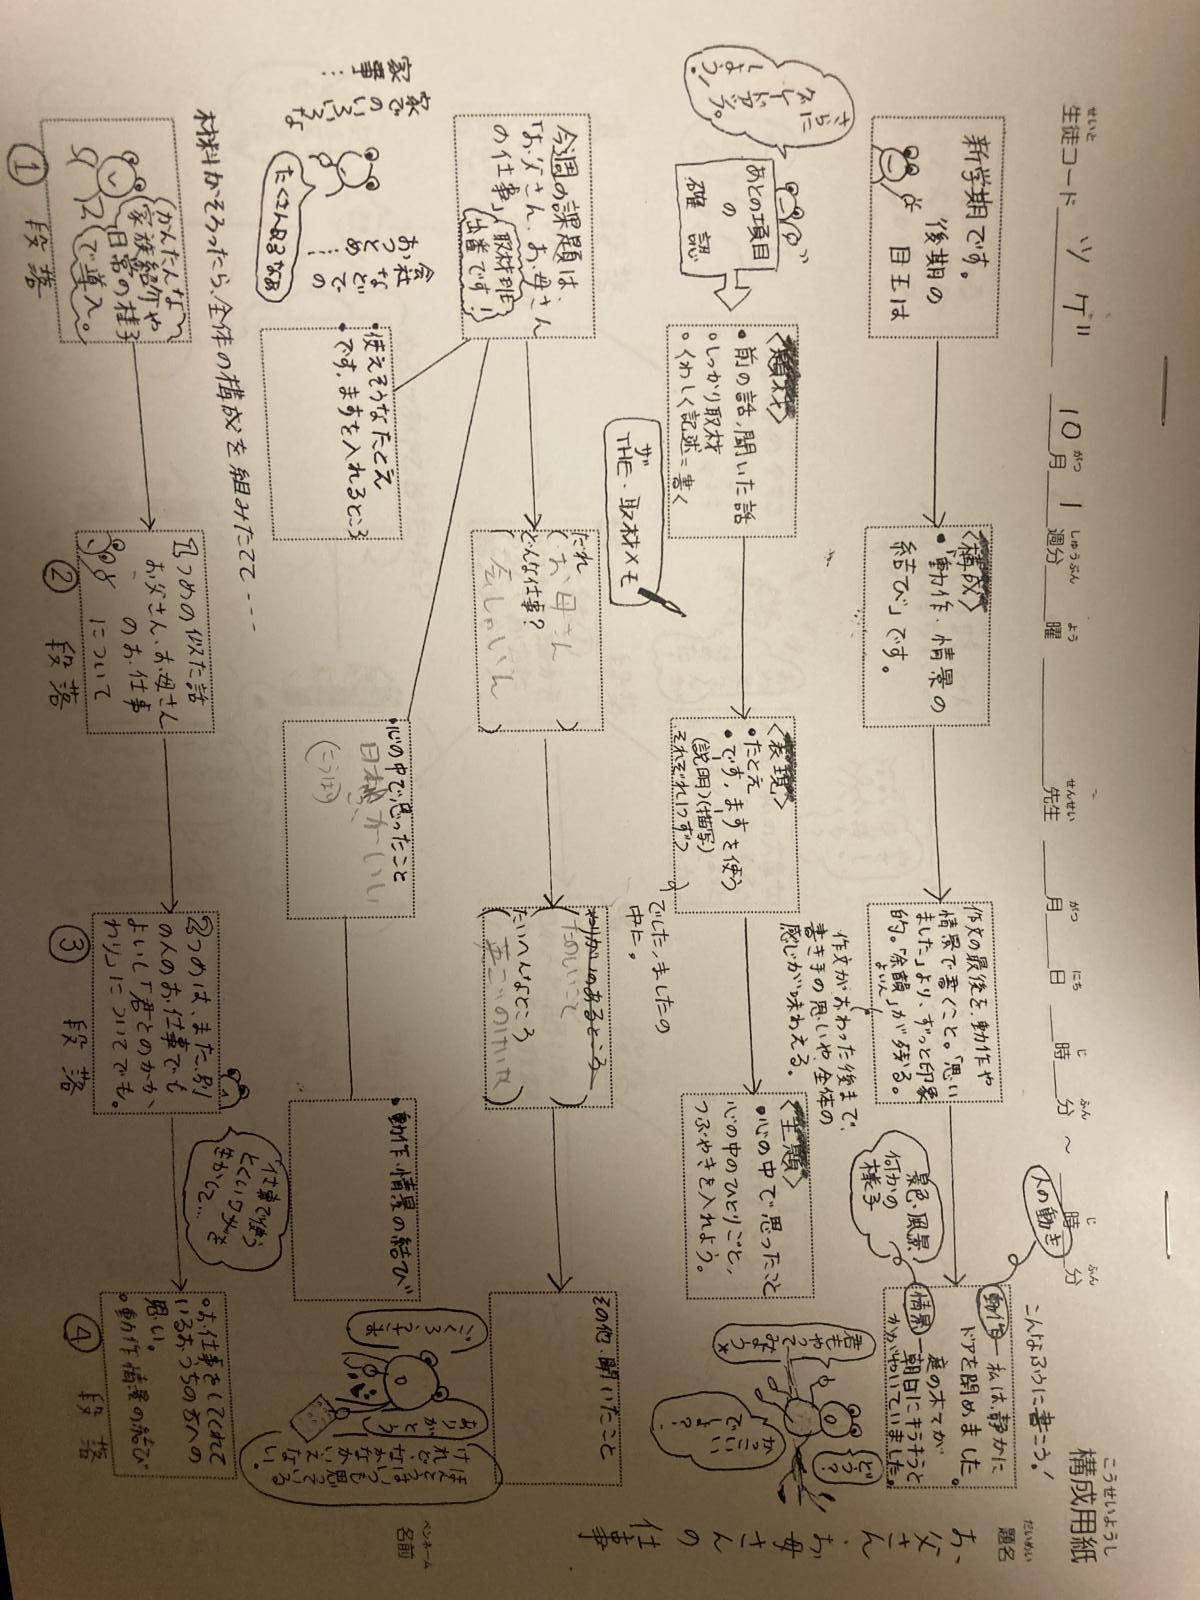 構成用紙
こうせいようし
生徒コード ツゲ 10月1週分 曜 先生 月 日 時 分 ～ 時 分
せいと がつ しゅうぶん よう せんせい がつ にち じ ふん じ ふん
題名
だいめい
お父さん・お母さんの
仕事
名前
ペンネーム
新学期です。
後期の
目玉は
〈構成〉
・「動作・情景の
結び」です。
作文の最後を、動作や
情景で書くこと。「思い
ました」より、ずっと印象
的。「余韻」が残る。
よいん
作文がおわった後まで、
書き手の思いや、全体の
感じが味わえる。
人の動き
景色・風景
何かの
様子
こんなふうに書こう！
動作―私は、静かに
ドアを閉めました。
庭の木々が
情景―朝日にキラキラと
かがやいていました。
さらに
しよう！
あとの項目
の
確認
〈題材〉
・前の話、聞いた話
・しっかり取材
・くわしく記述＝書く
ザ
THE・取材メモ
〈表現〉
・たとえ
・です、ますを使う
(説明)(描写)
それぞれ1つずつ
でした、ましたの
中に。
〈主題〉
・心の中で思ったこと
心の中のひとりごと、
つぶやきを入れよう。
君も
やって
みよう
かっこいい
でしょ？
どう？
今週の課題は、
「お父さん、お母さん
の仕事」取材班
出動です！
だれ
(お母さん)
どんな仕事？
(会しゃいん)
やりがいのあるところ
(たのしいこと)
たいへんなところ
その他・聞いたこと
家での いろいろな
家事…
会社などでの
おつとめ…
たくさんあるなあ
・使えそうなたとえ
・です、ますを入れるところ
・心の中で思ったこと
・動作・情景の結び
ごくろうさま
ありがとう
ほんとうは、
いつも思っている
けれど、なかなかいえ
ない。
材料がそろったら、全体の構成を組みたてて---
かんたんな
家族紹介や
日常の様子
で導入。
① 段落
1つめの似た話
お父さん、お母さん
のお仕事
について
② 段落
2つめは、また別
の人のお仕事でも
よいし「君とのかか
わり」についてでも。
③ 段落
「仕事で使う
とくいワザ」を
生かして…
・お仕事をしてくれて
いるおうちの方への
思い。
・動作・情景の結び
④ 段落